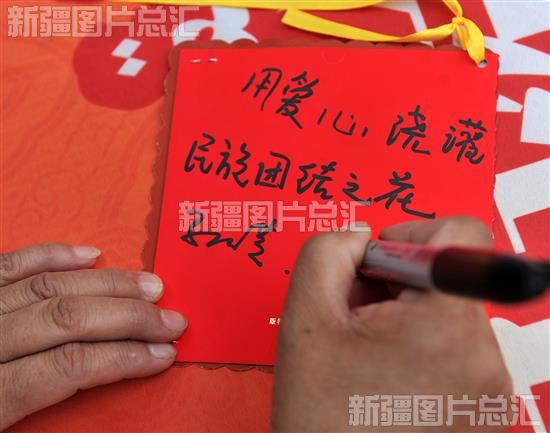 新疆图片总汇
用爱心浇灌
民族团结之花
新疆图片总汇
新疆图片总汇